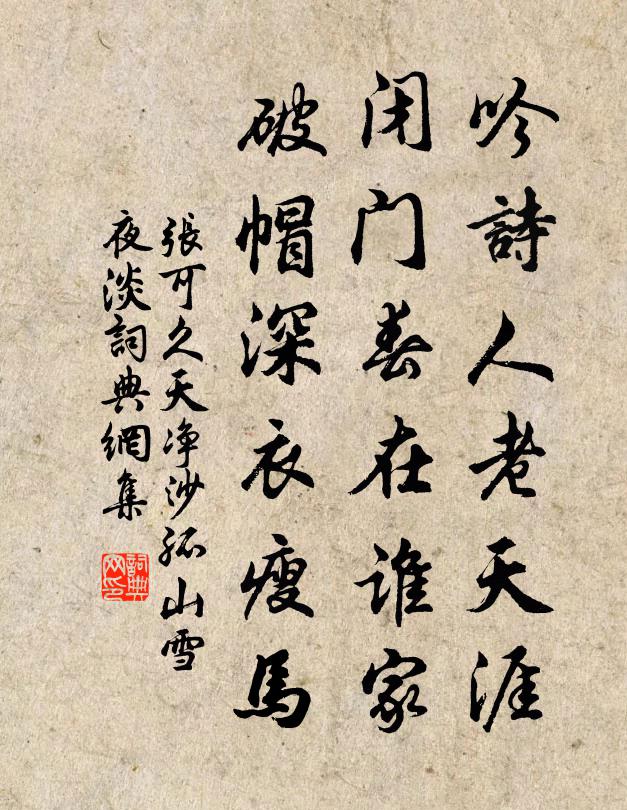 吟詩人老天涯
闭门春在誰家
破帽深衣瘦馬
張可久天净沙孤山雪
夜淡詞典網集
詞典
网印